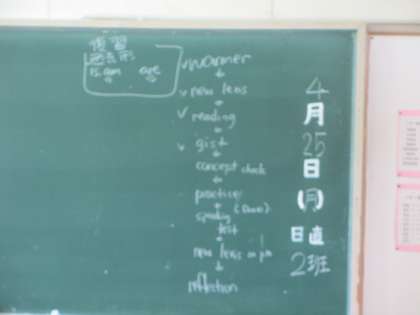 復習
過去形
is.am are
warmer
new lens
reading
gist
concept check
practice
speaking (Dave)
test
new lens on p10
reflection
4
月
25
日
(月)
日直
2班